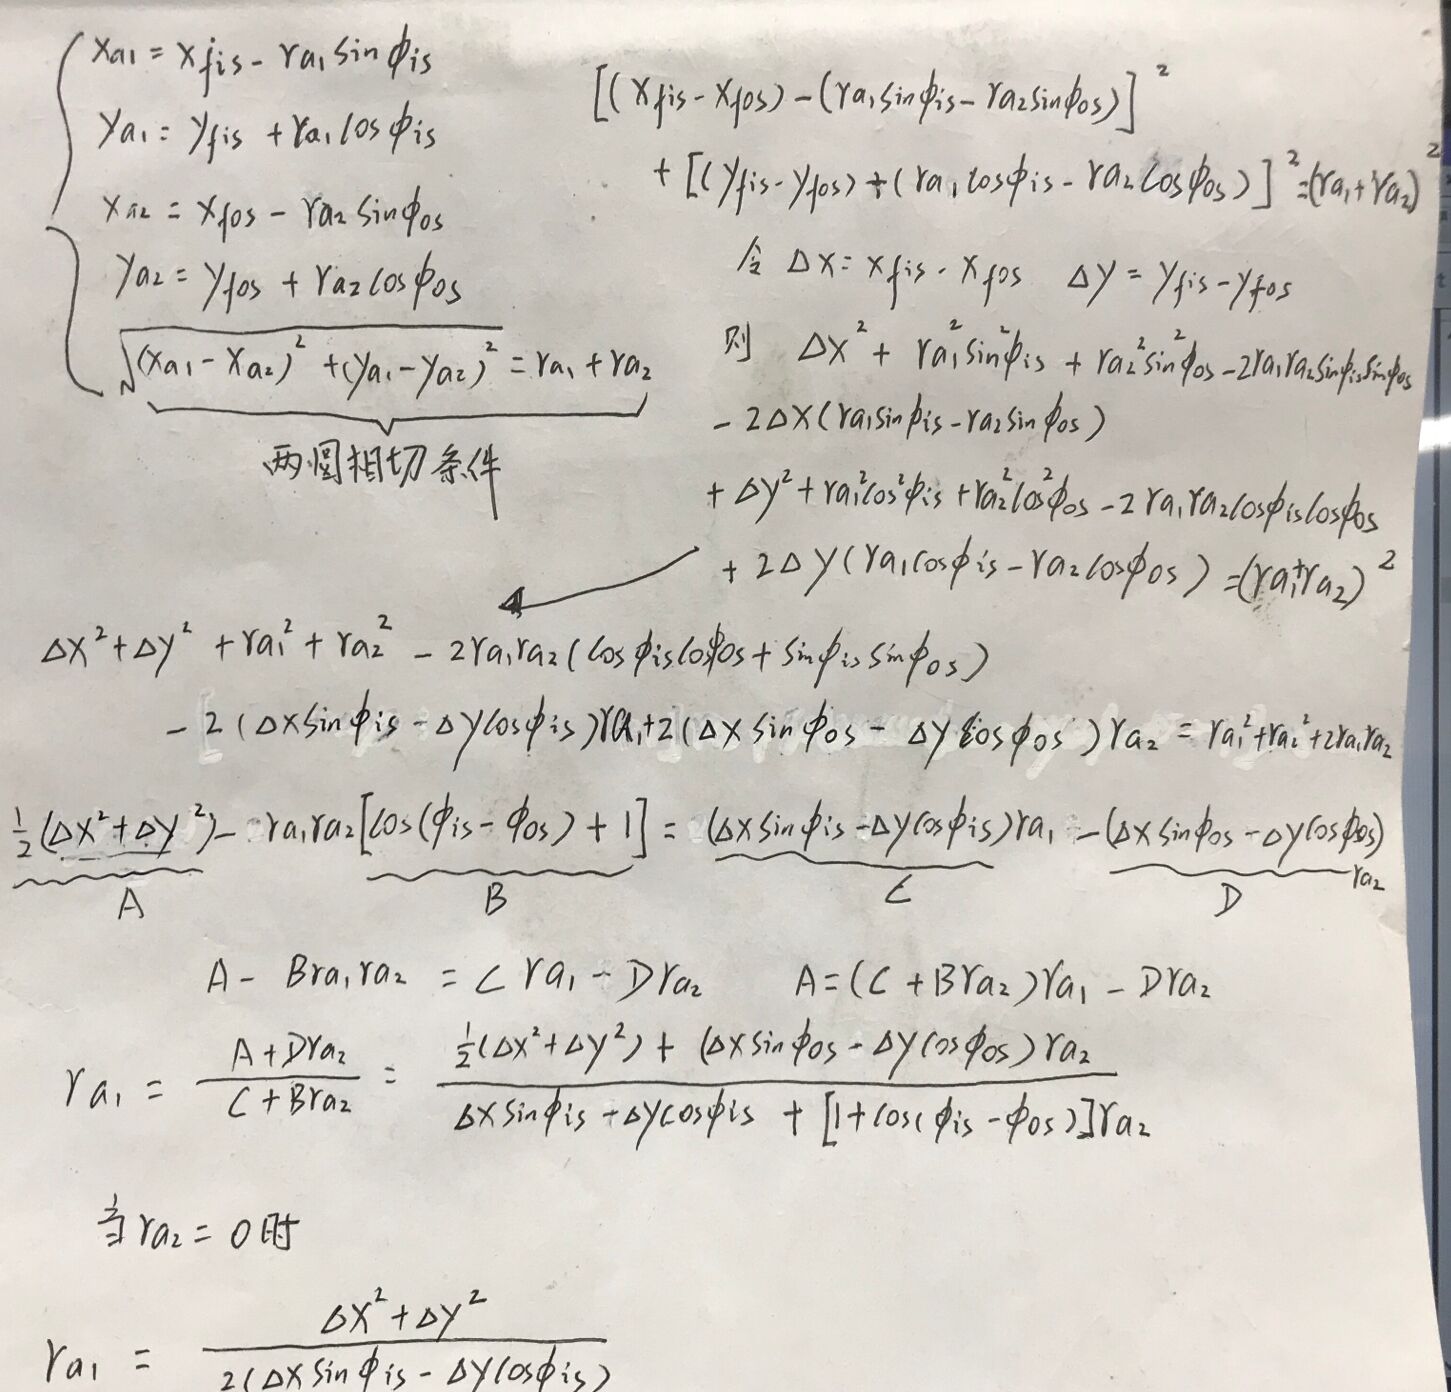 xa₁ = xfis - ra₁ sin ϕis
ya₁ = yfis + ra₁ cos ϕis
xa₂ = xfos - ra₂ sin ϕos
ya₂ = yfos + ra₂ cos ϕos
√((xa₁ - xa₂)² + (ya₁ - ya₂)²) = ra₁ + ra₂
两圆相切条件
[(xfis - xfos) - (ra₁ sin ϕis - ra₂ sin ϕos)]²
+ [(yfis - yfos) + (ra₁ cos ϕis - ra₂ cos ϕos)]² = (ra₁ + ra₂)²
令 Δx = xfis - xfos Δy = yfis - yfos
则 Δx² + ra₁² sin² ϕis + ra₂² sin² ϕos - 2ra₁ra₂ sin ϕis sin ϕos
- 2Δx(ra₁ sin ϕis - ra₂ sin ϕos)
+ Δy² + ra₁² cos² ϕis + ra₂² cos² ϕos - 2ra₁ra₂ cos ϕis cos ϕos
+ 2Δy(ra₁ cos ϕis - ra₂ cos ϕos) = (ra₁ + ra₂)²
Δx² + Δy² + ra₁² + ra₂² - 2ra₁ra₂(cos ϕis cos ϕos + sin ϕis sin ϕos)
- 2(Δx sin ϕis - Δy cos ϕis)ra₁ + 2(Δx sin ϕos - Δy cos ϕos)ra₂ = ra₁² + ra₂² + 2ra₁ra₂
½(Δx² + Δy²) - ra₁ra₂[cos(ϕis - ϕos) + 1] = (Δx sin ϕis - Δy cos ϕis)ra₁ - (Δx sin ϕos - Δy cos ϕos)ra₂
A B C D
A - Bra₁ra₂ = Cra₁ - Dra₂ A = (C + Bra₂)ra₁ - Dra₂
ra₁ = (A + Dra₂)/(C + Bra₂) = (½(Δx² + Δy²) + (Δx sin ϕos - Δy cos ϕos)ra₂)/(Δx sin ϕis - Δy cos ϕis + [1 + cos(ϕis - ϕos)]ra₂)
当 ra₂ = 0 时
ra₁ = (Δx² + Δy²)/(2(Δx sin ϕis - Δy cos ϕis))